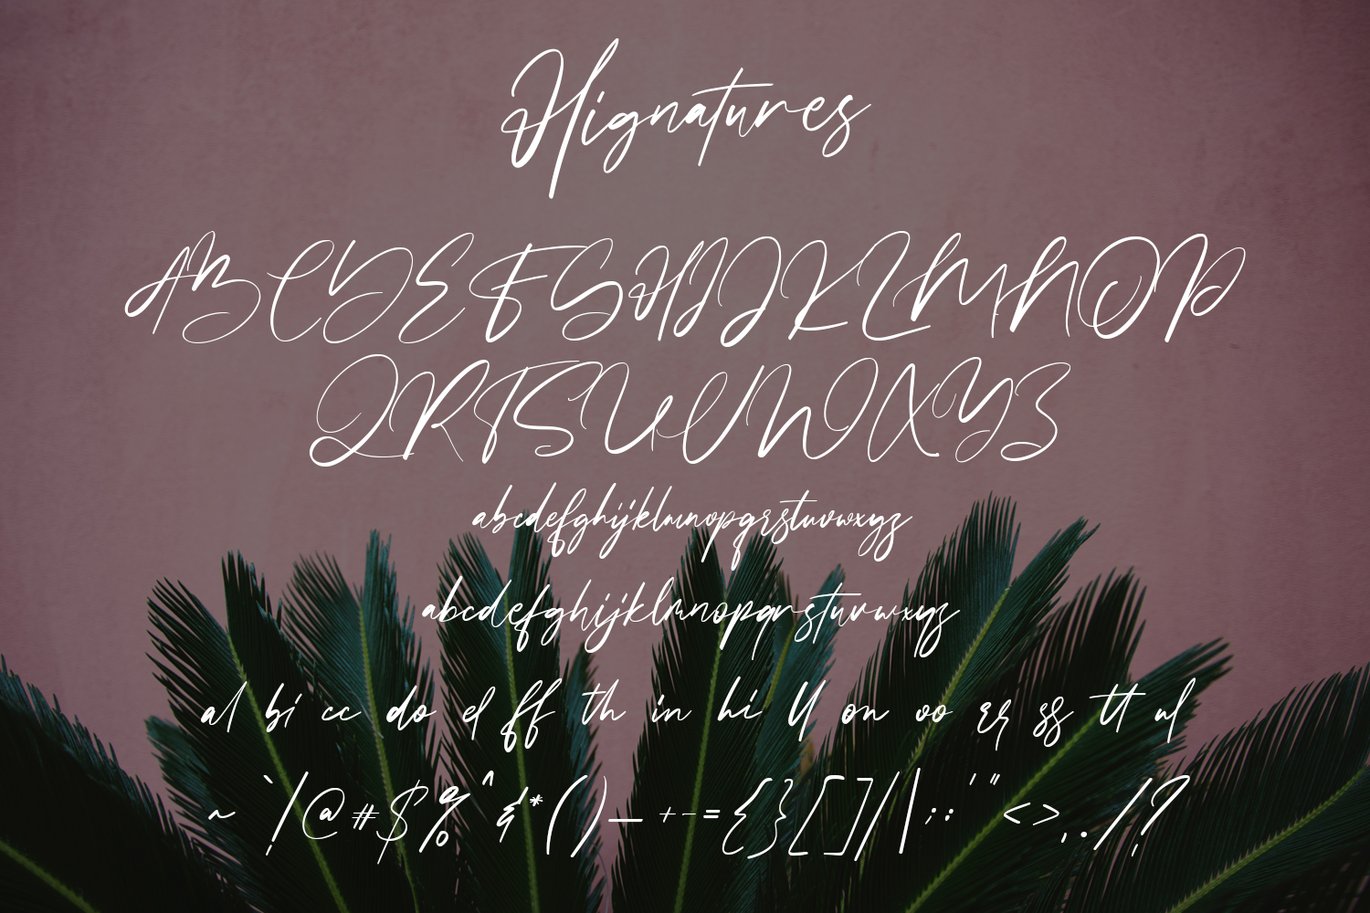 Hignatures
ABCDEFGHIJKLMNOP
QRTSUVWXYZ
abcdefghijklmnopqrstuvwxyz
abcdefghijklmnopqrstuvwxyz
al bi cc do el ff th in hi ll on oo rr ss tt ul
~ `!@#$%^&*()_+-={}[]/|;:'"<>,./!?